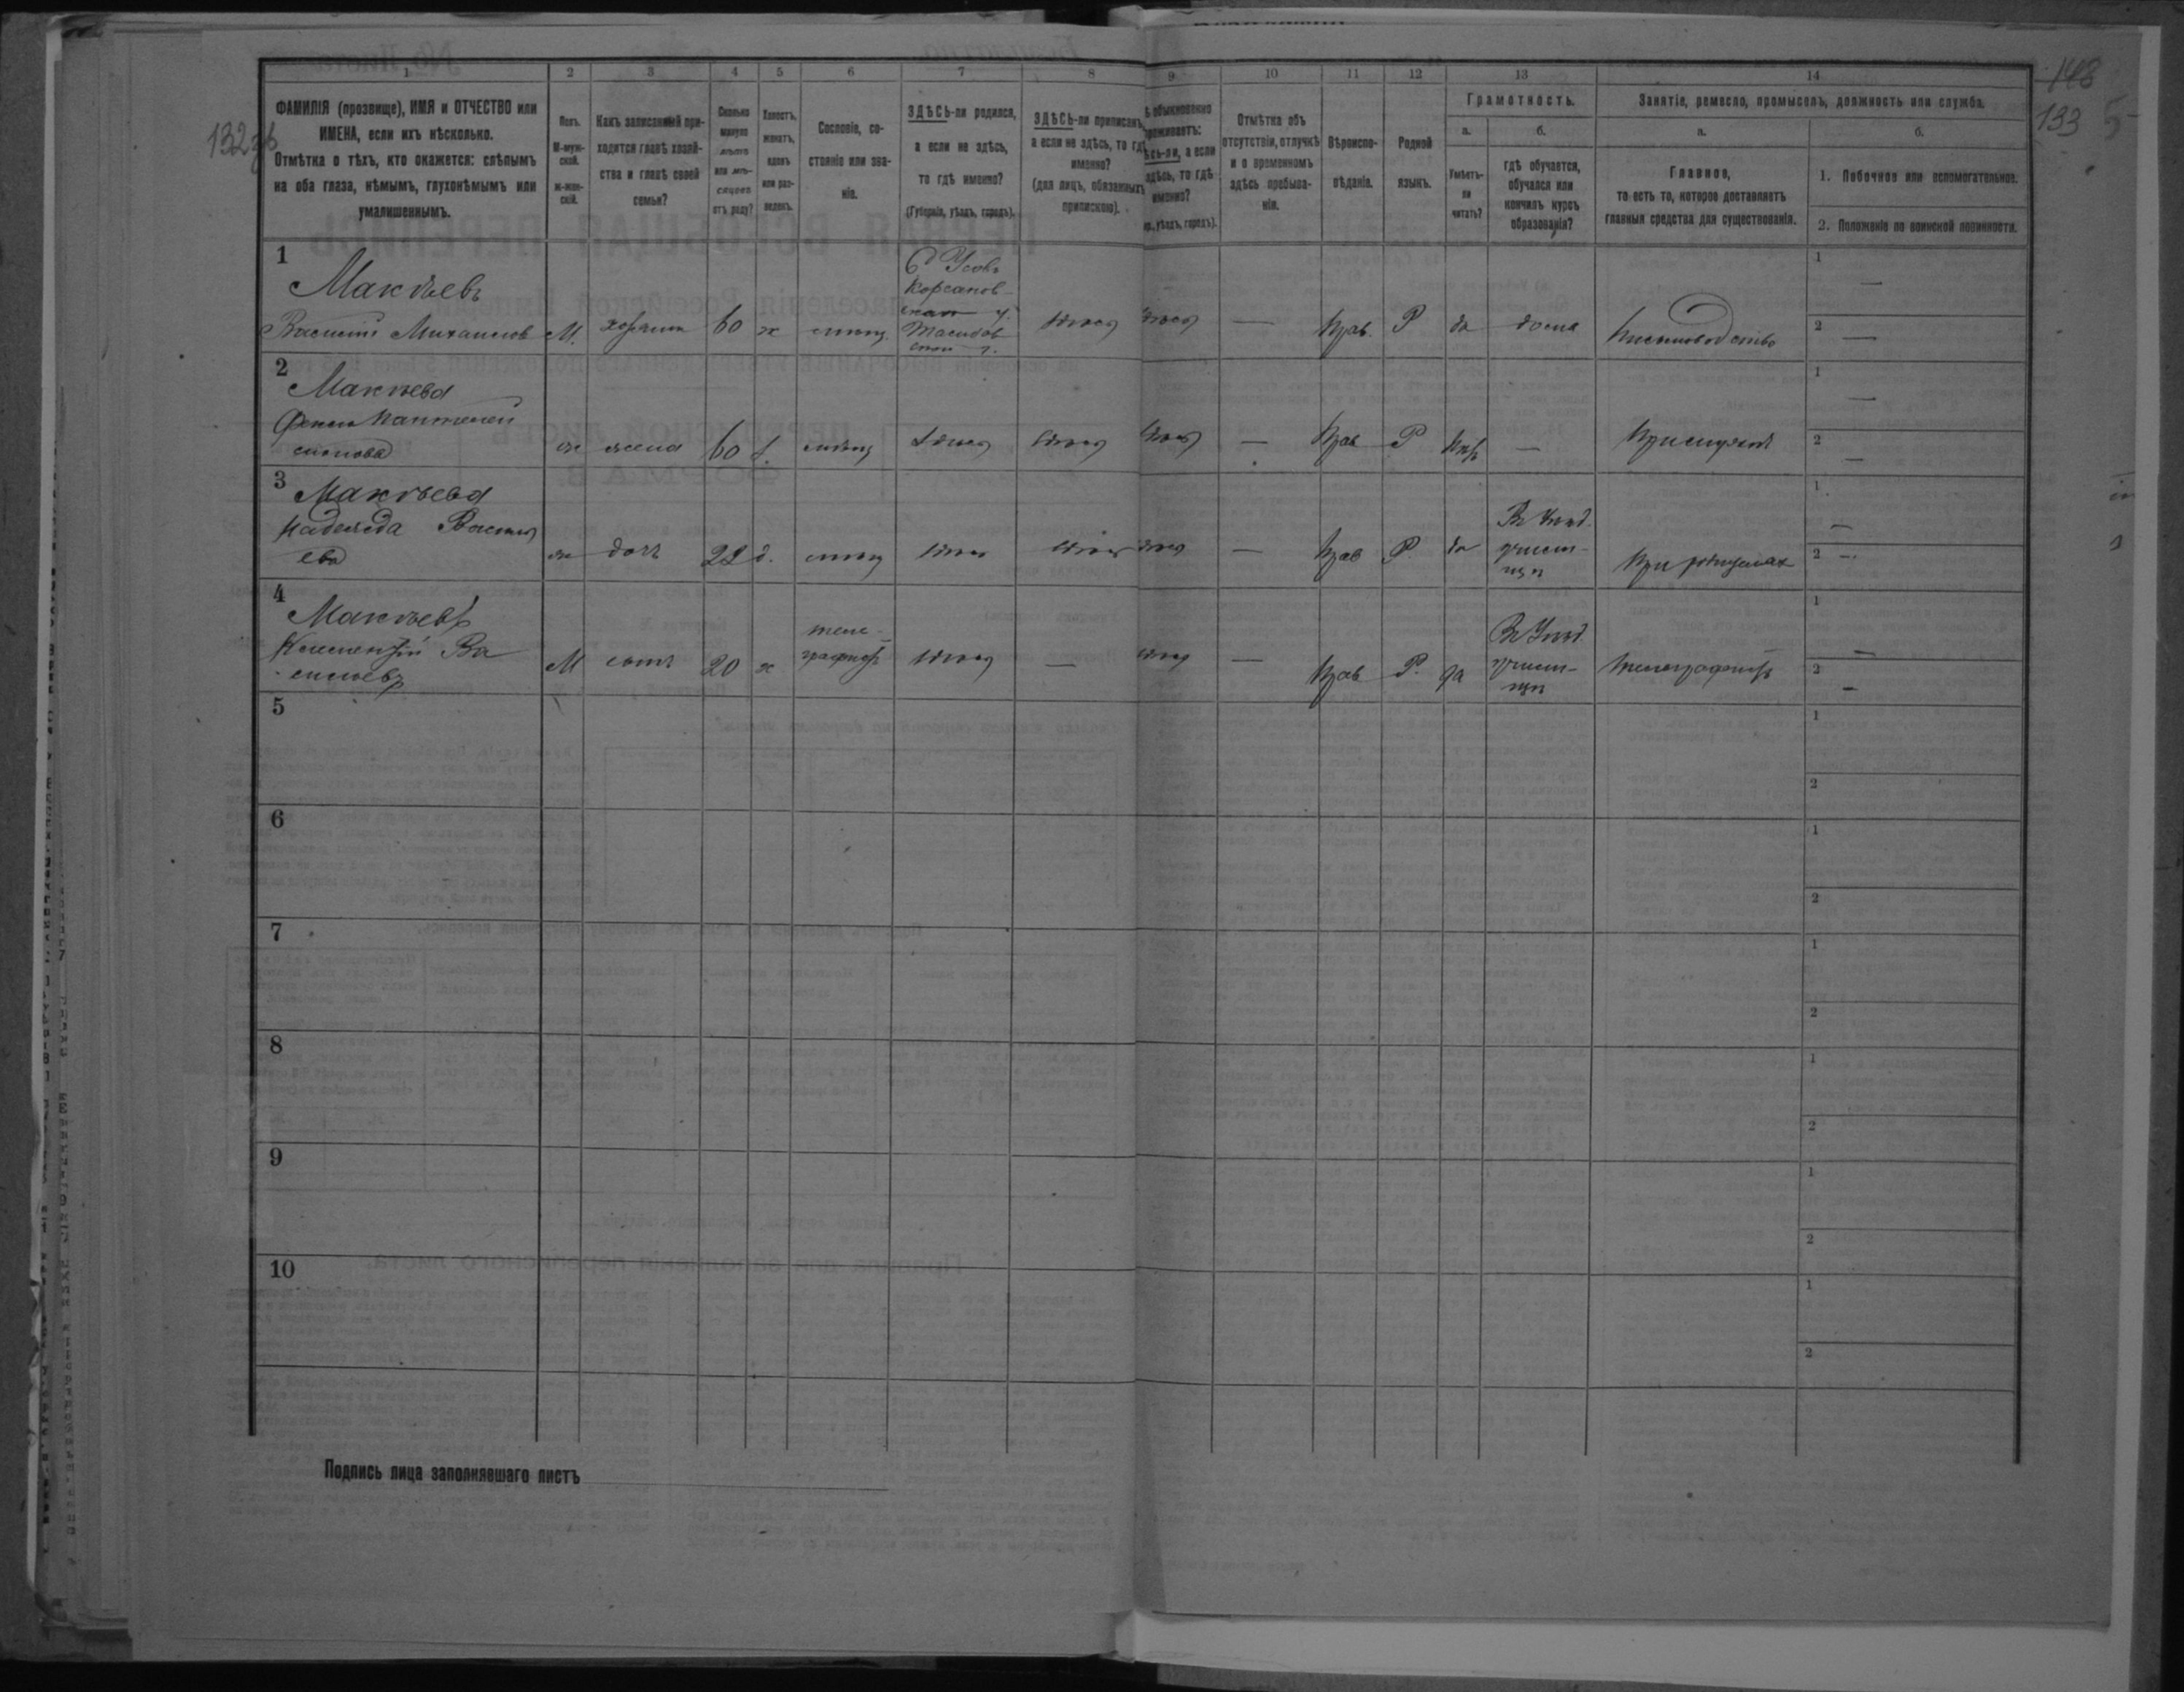 1 2 3 4 5 6 7 8 9 10 11 12 13 14
148
132об
133 5
ФАМИЛІЯ (прозвище), ИМЯ и ОТЧЕСТВО или
ИМЕНА, если ихъ нѣсколько.
Отмѣтка о тѣхъ, кто окажется: слѣпымъ
на оба глаза, нѣмымъ, глухонѣмымъ или
умалишеннымъ.
Полъ.
М-муж-
ской.
ж-жен-
скій.
Какъ записанный при-
ходится главѣ хозяй-
ства и главѣ своей
семьи?
Сколько
минуло
лѣтъ
или мѣ-
сяцевъ
отъ роду?
Холостъ,
женатъ,
вдовъ
или раз-
веденъ.
Сословіе, со-
стояніе или зва-
ніе.
ЗДѢСЬ-ли родился,
а если не здѣсь,
то гдѣ именно?
(Губернія, уѣздъ, городъ).
ЗДѢСЬ-ли приписанъ,
а если не здѣсь, то гдѣ
именно?
(для лицъ, обязанныхъ
припискою).
обыкновенно
проживаетъ:
а если
здѣсь, то гдѣ
именно?
уѣздъ, городъ).
Отмѣтка объ
отсутствіи, отлучкѣ
и о временномъ
здѣсь пребыва-
ніи.
Вѣроиспо-
вѣданіе.
Родной
языкъ.
Грамотность.
а.
Умѣетъ-
ли
читать?
б.
гдѣ обучается,
обучался или
кончилъ курсъ
образованія?
Занятіе, ремесло, промыселъ, должность или служба.
а.
Главное,
то есть то, которое доставляетъ
главныя средства для существованія.
б.
1. Побочное или вспомогательное.
2. Положеніе по воинской повинности.
1
Макѣевъ
Василій Михаиловъ М. хозяинъ 60 ж здѣсь — Прав. Р да дома Письмоводство
1 —
2 —
2
Макѣева
Пантелей
ж жена 60 здѣсь здѣсь здѣсь — Прав Р — При мужѣ
1 —
2 —
3
Макѣева
Надежда Василь
ева ж дочь 22 д. здѣсь здѣсь здѣсь — Прав Р. да
Въ Уѣзд.
учили-
щѣ
При родителях
1 —
2 —
4
Макѣевъ
Климентій Ва
сильевъ М сынъ 20 х
теле-
графистъ здѣсь — здѣсь — Прав Р. да
Въ Уѣзд.
учили-
щѣ
телеграфистъ
1 —
2 —
5
1
2
6
1
2
7
1
2
8
1
2
9
1
2
10
1
2
Подпись лица заполнявшаго листъ